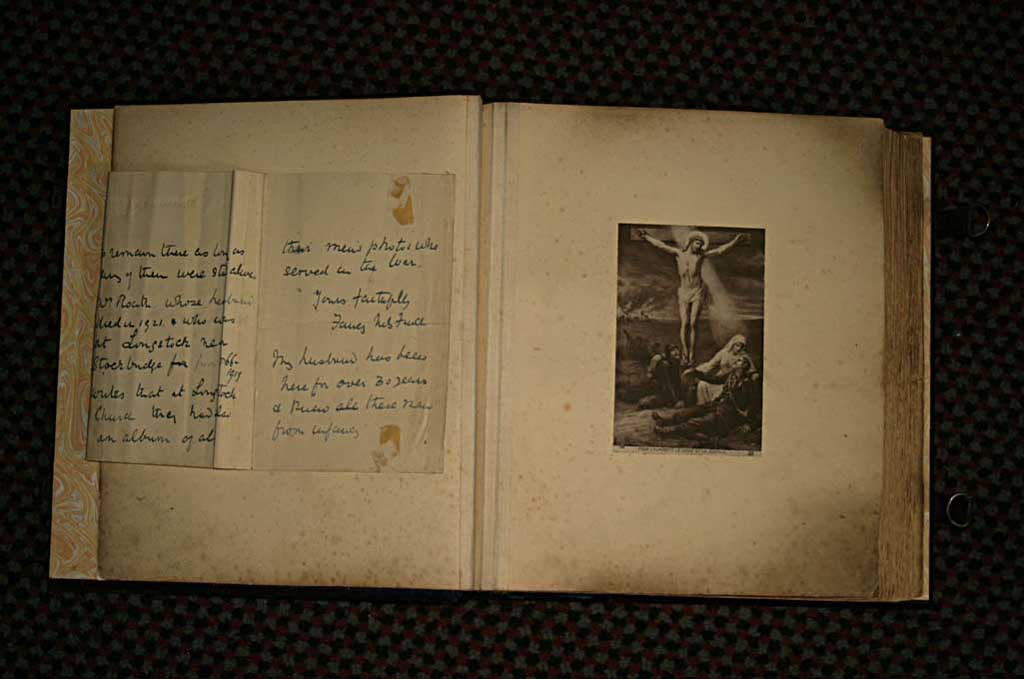 remain there as long as
any of them were still alive.
Mrs Routh whose husband
died in 1921. & who was
at Longstock near
Stockbridge for
1919
writes that at Longstock
Church they had
an album of all
their men's photos who
served in the War.
Yours faithfully
My husband has been
here for over 30 years
& knew all these men
from infancy